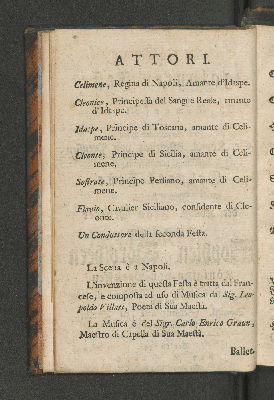 ATTORI.
Celimene, Regina di Napoli, Amante d'Idaspe.
Cleonice, Principessa del Sangue Reale, amante
d'Idaspe.
Idaspe, Principe di Toscana, amante di Celi-
mene.
Cleonte, Principe di Sicilia, amante di Celi-
mene.
Sostrate, Principe Persiano, amante di Celi-
mene.
Flavio, Cavalier Siciliano, confidente di Cle-
onte.
Un Conduttore della seconda Festa.
La Scena è a Napoli.
L'invenzione di questa Festa è tratta dal Fran-
cese, e composta ad uso di Musica dal Sig. Leo-
poldo Villati, Poeta di Sua Maestà.
La Musica è del Sign. Carlo Enrico Graun,
Maestro di Capella di Sua Maestà.
Ballet-